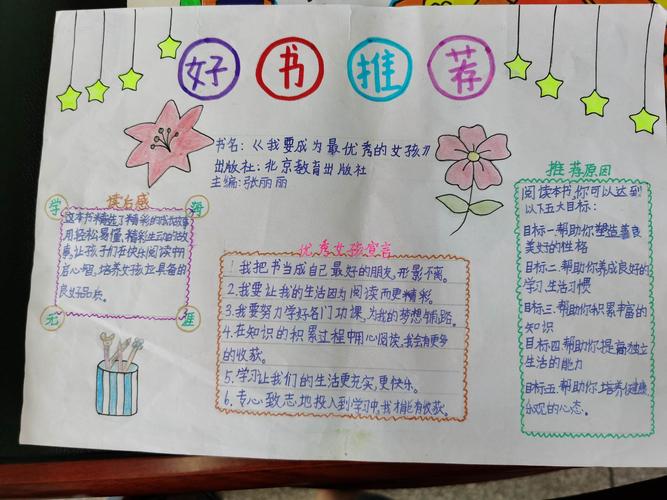 好书推荐
书名：《我要成为最优秀的女孩》
出版社：北京教育出版社
主编：张丽丽
读后感
学
海
无
涯
这本书精选了精彩的成故事
用轻松易懂，精彩生动的故
事，让孩子们在快乐阅读中
启心智，培养女孩应具备的
良好品质。
优秀女孩宣言
1.我把书当成自己最好的朋友，形影不离。
2.我要让我的生活因为阅读而更精彩。
3.我要努力学好各门功课，为我的梦想铺路。
4.在知识的积累过程中用心阅读，我会有更多
的收获。
5.学习让我们的生活更充实，更快乐。
6.专心致志地投入到学习中，我才能有收获。
推荐原因
阅读本书，你可以达到
以下五大目标：
目标一.帮助你塑造善良
美好的性格
目标二.帮助你养成良好的
学习.生活习惯
目标三.帮助你积累丰富的
知识
目标四.帮助你提高独立
生活的能力
目标五.帮助你培养健康
乐观的心态。